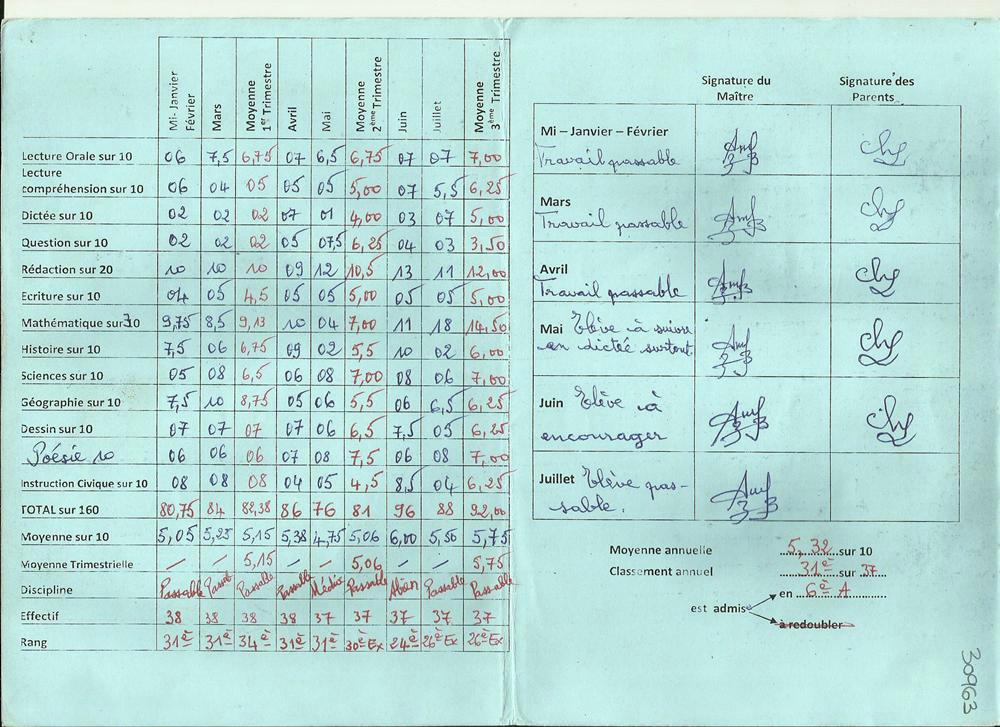 Mi- Janvier Février Mars Moyenne 1er Trimestre Avril Mai Moyenne 2ème Trimestre Juin Juillet Moyenne 3ème Trimestre
Lecture Orale sur 10 06 7,5 6,75 07 6,5 6,75 07 07 7,00
Lecture
compréhension sur 10 06 04 05 05 05 5,00 07 5,5 6,25
Dictée sur 10 02 02 02 07 01 4,00 03 07 5,00
Question sur 10 02 02 02 05 07,5 6,25 04 03 3,50
Rédaction sur 20 10 10 10 09 12 10,5 13 11 12,00
Ecriture sur 10 04 05 4,5 05 05 5,00 05 05 5,00
Mathématique sur 30 9,75 8,5 9,13 10 04 7,00 11 18 14,50
Histoire sur 10 7,5 06 6,75 09 02 5,5 10 02 6,00
Sciences sur 10 05 08 6,5 06 08 7,00 08 06 7,00
Géographie sur 10 7,5 10 8,75 05 06 5,5 06 6,5 6,25
Dessin sur 10 07 07 07 07 06 6,5 7,5 05 6,25
Poésie 10 06 06 06 07 08 7,5 06 08 7,00
Instruction Civique sur 10 08 08 08 04 05 4,5 8,5 04 6,25
TOTAL sur 160 80,75 84 82,38 86 76 81 96 88 92,00
Moyenne sur 10 5,05 5,25 5,15 5,38 4,75 5,06 6,00 5,50 5,75
Moyenne Trimestrielle – – 5,15 – – 5,06 – – 5,75
Discipline Passable Passable Passable Passable Passable
Effectif 38 38 38 38 37 37 37 37 37
Rang 31è 31è 34è 31è 31è 30è Ex 24è 26è Ex 26è Ex
Signature du Maître
Signature des Parents
Mi – Janvier – Février
Travail passable
Mars
Travail passable
Avril
Travail passable
Mai Elève à suivre
en dictée surtout.
Juin Elève à
encourager
Juillet Elève pas-
sable.
Moyenne annuelle 5,32 sur 10
Classement annuel 31è sur 37
en 6è A
est admis
à redoubler
30963